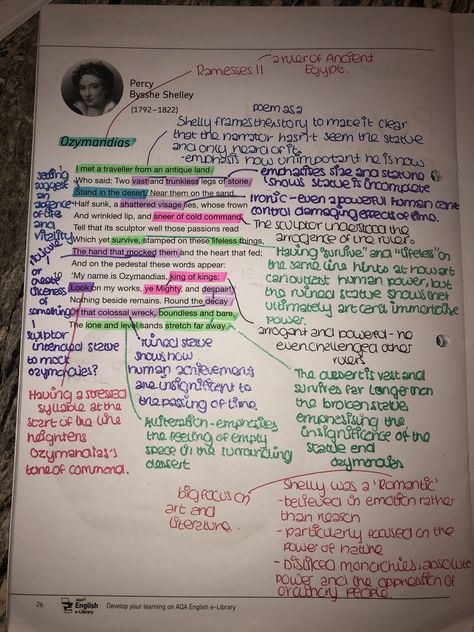 Ramesses II
a ruler of Ancient
Egypt.
Percy
Bysshe Shelley
(1792–1822)
Ozymandias
poem as a
Shelly frames the story to make it clear
that the narrator hasn't seem the statue
and only heard of it.
- emphasis how unimportant he is now
I met a traveller from an antique land
Who said: Two vast and trunkless legs of stone
Stand in the desert. Near them on the sand,
Half sunk, a shattered visage lies, whose frown
And wrinkled lip, and sneer of cold command,
Tell that its sculptor well those passions read
Which yet survive, stamped on these lifeless things,
The hand that mocked them and the heart that fed;
And on the pedestal these words appear:
10 'My name is Ozymandias, king of kings:
Look on my works, ye Mighty, and despair!'
Nothing beside remains. Round the decay
Of that colossal wreck, boundless and bare,
The lone and level sands stretch far away.
emphasises size and stature
shows statue is incomplete
Ironic - even a powerful human cant
control damaging effects of time.
The sculptor understood the
arrogance of the ruler.
Having "survive" and "lifeless" on
the same line hints at how art
can outlast human power, but
the ruined statue shows that
ultimately art cant immortalise
power.
arrogant and powerful - he
even challenged other
rulers
The desert is vast and
survives far longer than
the broken statue
emphasising the
insignificance of the
statue and
ozymandias
setting
suggest
an
absence
of life
and
vitality
or
create
likeness of
something
sculptor
intended statue
to mock
ozymandias?
Having a stressed
syllable at the
start of the line
heightens
Ozymandias's
tone of command.
ruined statue
shows how
human achievements
are insignificant to
the passing of time.
Alliteration - emphasies
the feeling of empty
space in the surrounding
dessert
big focus on
art and
literature
Shelly was a 'Romantic'
- believed in emotion rather
than reason
- particularly focused on the
power of nature
- Disliked monarchies, absolute
power and the oppression of
ordinary people.
26
AQA
English
e-Library
Develop your learning on AQA English e-Library